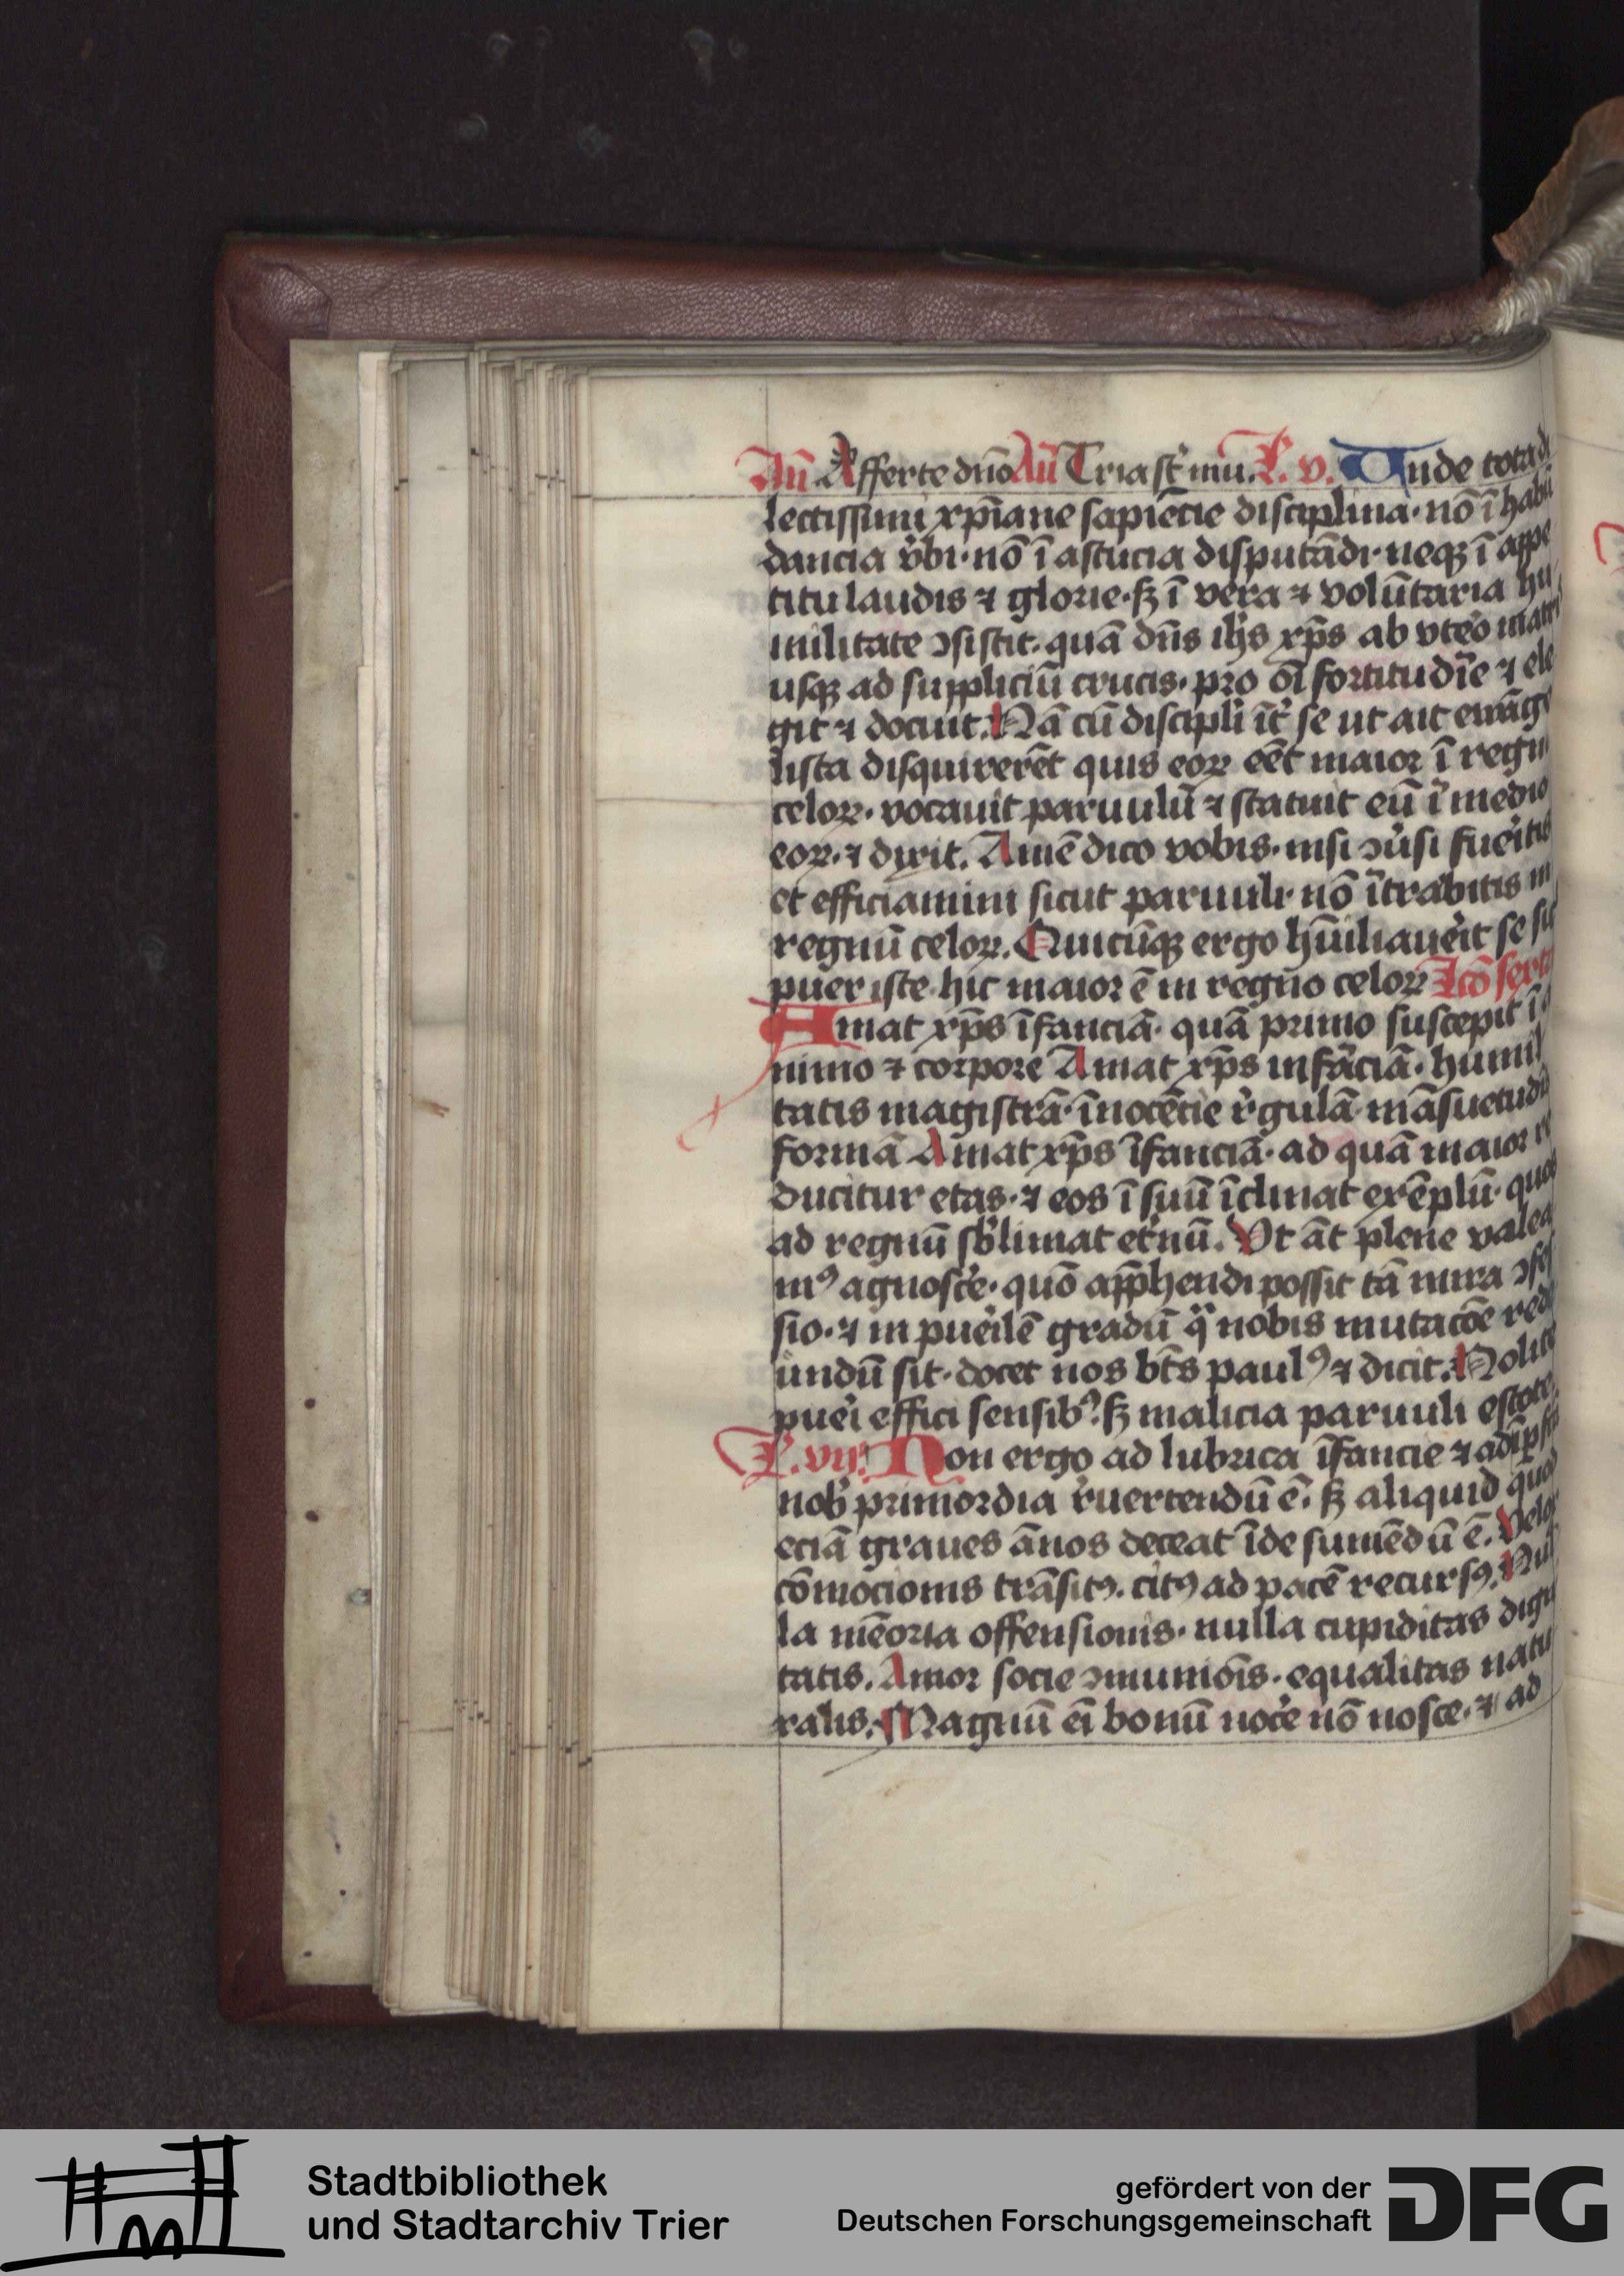 An̄ Afferte dn̄o An̄ Tria st̄ mn̄. L. v. Unde tota di
lectissimi xp̄iane sapiēcie disciplina· nō ī habū
dancia v̓bi· nō ī astucia disputādi· neqꝫ ī appe
titu laudis ⁊ glorie· sꝫ ī vera ⁊ volūtaria hu
militate ꝯsistit· quā dn̄s ihs̄ xp̄s ab vte̓o matr̓
usqꝫ ad suppliciū crucis· pro oī fortitudīe ⁊ ele
git ⁊ docuit. Nā cū discipl̓i īt̓ se ut ait ewāge
lista disquirerēt quis eoꝝ eēt maior ī regn
celoꝝ· vocauit paruulū ⁊ statuit eū ī medio
eoꝝ· ⁊ dixit. Amē dico vobis· nisi ꝯu̓si fue̓itis
et efficiamini sicut paruuli· nō ītrabitis in
regnū celoꝝ. Quicūqꝫ ergo hūiliaue̓it se sic
puer iste· hic maior ē in regno celoꝝ Lc̄o sexta
Amat xp̄s īfanciā· quā primo suscepit ī a
nimo ⁊ corpore Amat xp̄s infāciā· humil
tatis magistrā· īnocēcie r̓gulā· māsuetudis
formā Amat xp̄s īfanciā· ad quā maior re
ducitur etas· ⁊ eos ī suū īclinat exēplū· quos
ad regnū sb̓limat et̓nū. Vt āt plene valea
mꝰ agnosce̓· quō app̄hendi possit tā mira ꝯfes
sio· ⁊ in pue̓ilē gradū q̄ nobis mutacōe rede
undū sit· docet nos bt̄s paulꝰ ⁊ dicit. Nolite
pue̓i effici sensibꝰ· sꝫ malicia paruuli estote
L. vij. Non ergo ad lubrica īfancie ⁊ ad īpfc̄a
nob̓ primordia r̓uertendū ē· sꝫ aliquid quod
eciā graues ānos deceat īde sumēdū ē. Velox
cōmocionis trāsitꝰ· citꝰ ad pacē recursꝰ. Nul
la mēoria offensionis· nulla cupiditas digni
tatis. Amor socie ꝯmuniōis· equalitas natu
ralis. Magnū ei bonū noce̓ nō nosce· ⁊ ad
Stadtbibliothek
und Stadtarchiv Trier
gefördert von der
Deutschen Forschungsgemeinschaft
DFG